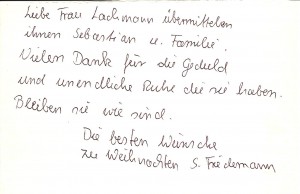 Liebe Frau Lachmann übermitteln
ihnen Sebastian u. Familie.
Vielen Dank für die Geduld
und unendliche Ruhe die sie haben.
Bleiben sie wie sind.
Die besten Wünsche
zu Weihnachten S. Friedemann